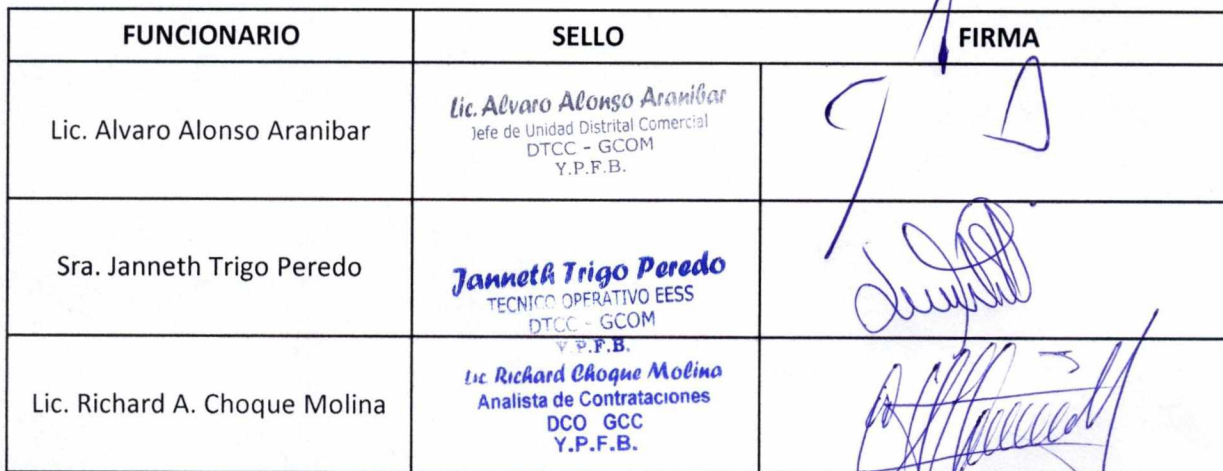 FUNCIONARIO SELLO FIRMA
Lic. Alvaro Alonso Aranibar
Lic. Alvaro Alonso Aranibar
Jefe de Unidad Distrital Comercial
DTCC - GCOM
Y.P.F.B.
Sra. Janneth Trigo Peredo
Janneth Trigo Peredo
TECNICO OPERATIVO EESS
DTCC - GCOM
Y.P.F.B.
Lic. Richard A. Choque Molina
Lic Richard Choque Molina
Analista de Contrataciones
DCO GCC
Y.P.F.B.